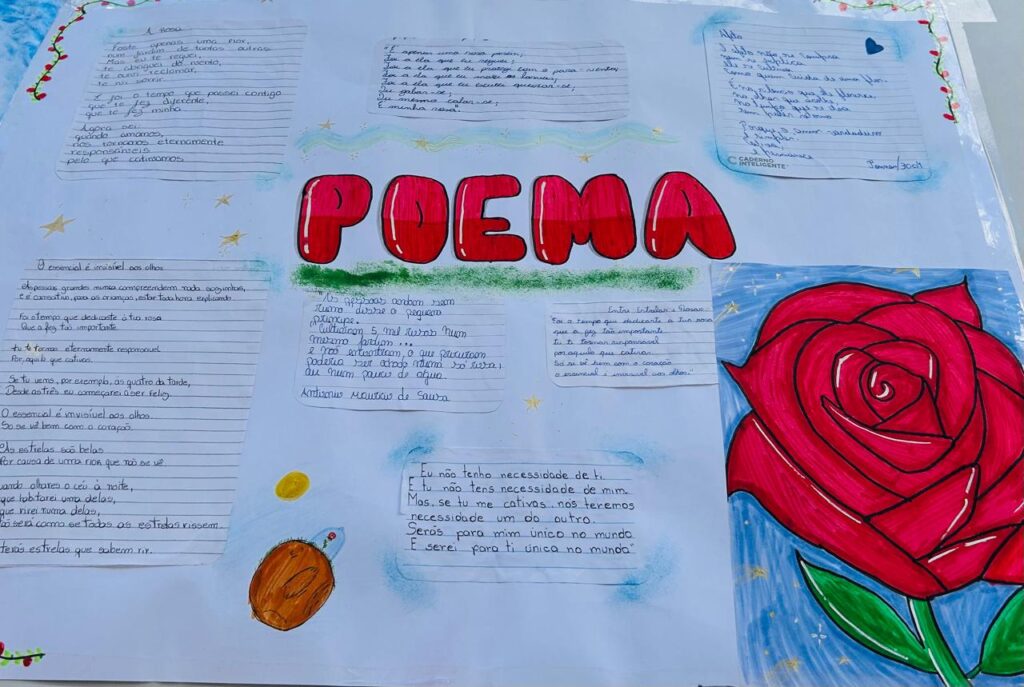 A Rosa
Foste apenas uma flor,
num jardim de tantas outras.
Mas eu te reguei,
te abriguei do vento,
te ouvi reclamar,
te vi sorrir.
E foi o tempo que passei contigo
que te fez diferente,
que te fez minha.
Agora sei:
quando amamos,
nos tornamos eternamente
responsáveis
pelo que cativamos.
"É apenas uma rosa porém,
foi a ela que eu reguei;
foi a ela que eu protegi com o para-vento;
foi a ela que eu matei as larvas;
foi a ela que eu escutei queixar-se;
Ou gabar-se;
Ou mesmo calar-se;
É minha rosa".
Afeto
O afeto não se compra
como quem cuida de uma flor.
Porque o amor verdadeiro
é simples
CADERNO
INTELIGENTE
POEMA
O essencial é invisível aos olhos
As pessoas grandes nunca compreendem nada sozinhas,
e é cansativo, para as crianças, estar toda hora explicando.
Foi o tempo que dedicaste à tua rosa
Que a fez tão importante.
Tu te tornas eternamente responsável
Por aquilo que cativas.
Se tu vens, por exemplo, às quatro da tarde,
Desde as três eu começarei a ser feliz.
O essencial é invisível aos olhos.
Só se vê bem com o coração.
As estrelas são belas
Por causa de uma flor que não se vê.
uando olhares o céu à noite,
que habitarei uma delas,
que rirei numa delas,
ão será como se todas as estrelas rissem.
terás estrelas que sabem rir.
"As pessoas andam sem
rumo disse o pequeno
príncipe.
Cultivam 5 mil rosas num
mesmo jardim...
e não encontram o que procuram
poderia ser achado numa só rosa,
ou num pouco de água.
Entre Estrelas e Rosas
"Foi o tempo que dedicaste a tua rosa
que a fez tão importante
tu te tornas responsável
por aquilo que cativas.
Só se vê bem com o coração
o essencial é invisível aos olhos."
Eu não tenho necessidade de ti.
E tu não tens necessidade de mim.
Mas, se tu me cativas, nós teremos
necessidade um do outro.
Serás para mim único no mundo.
E serei para ti única no mundo"